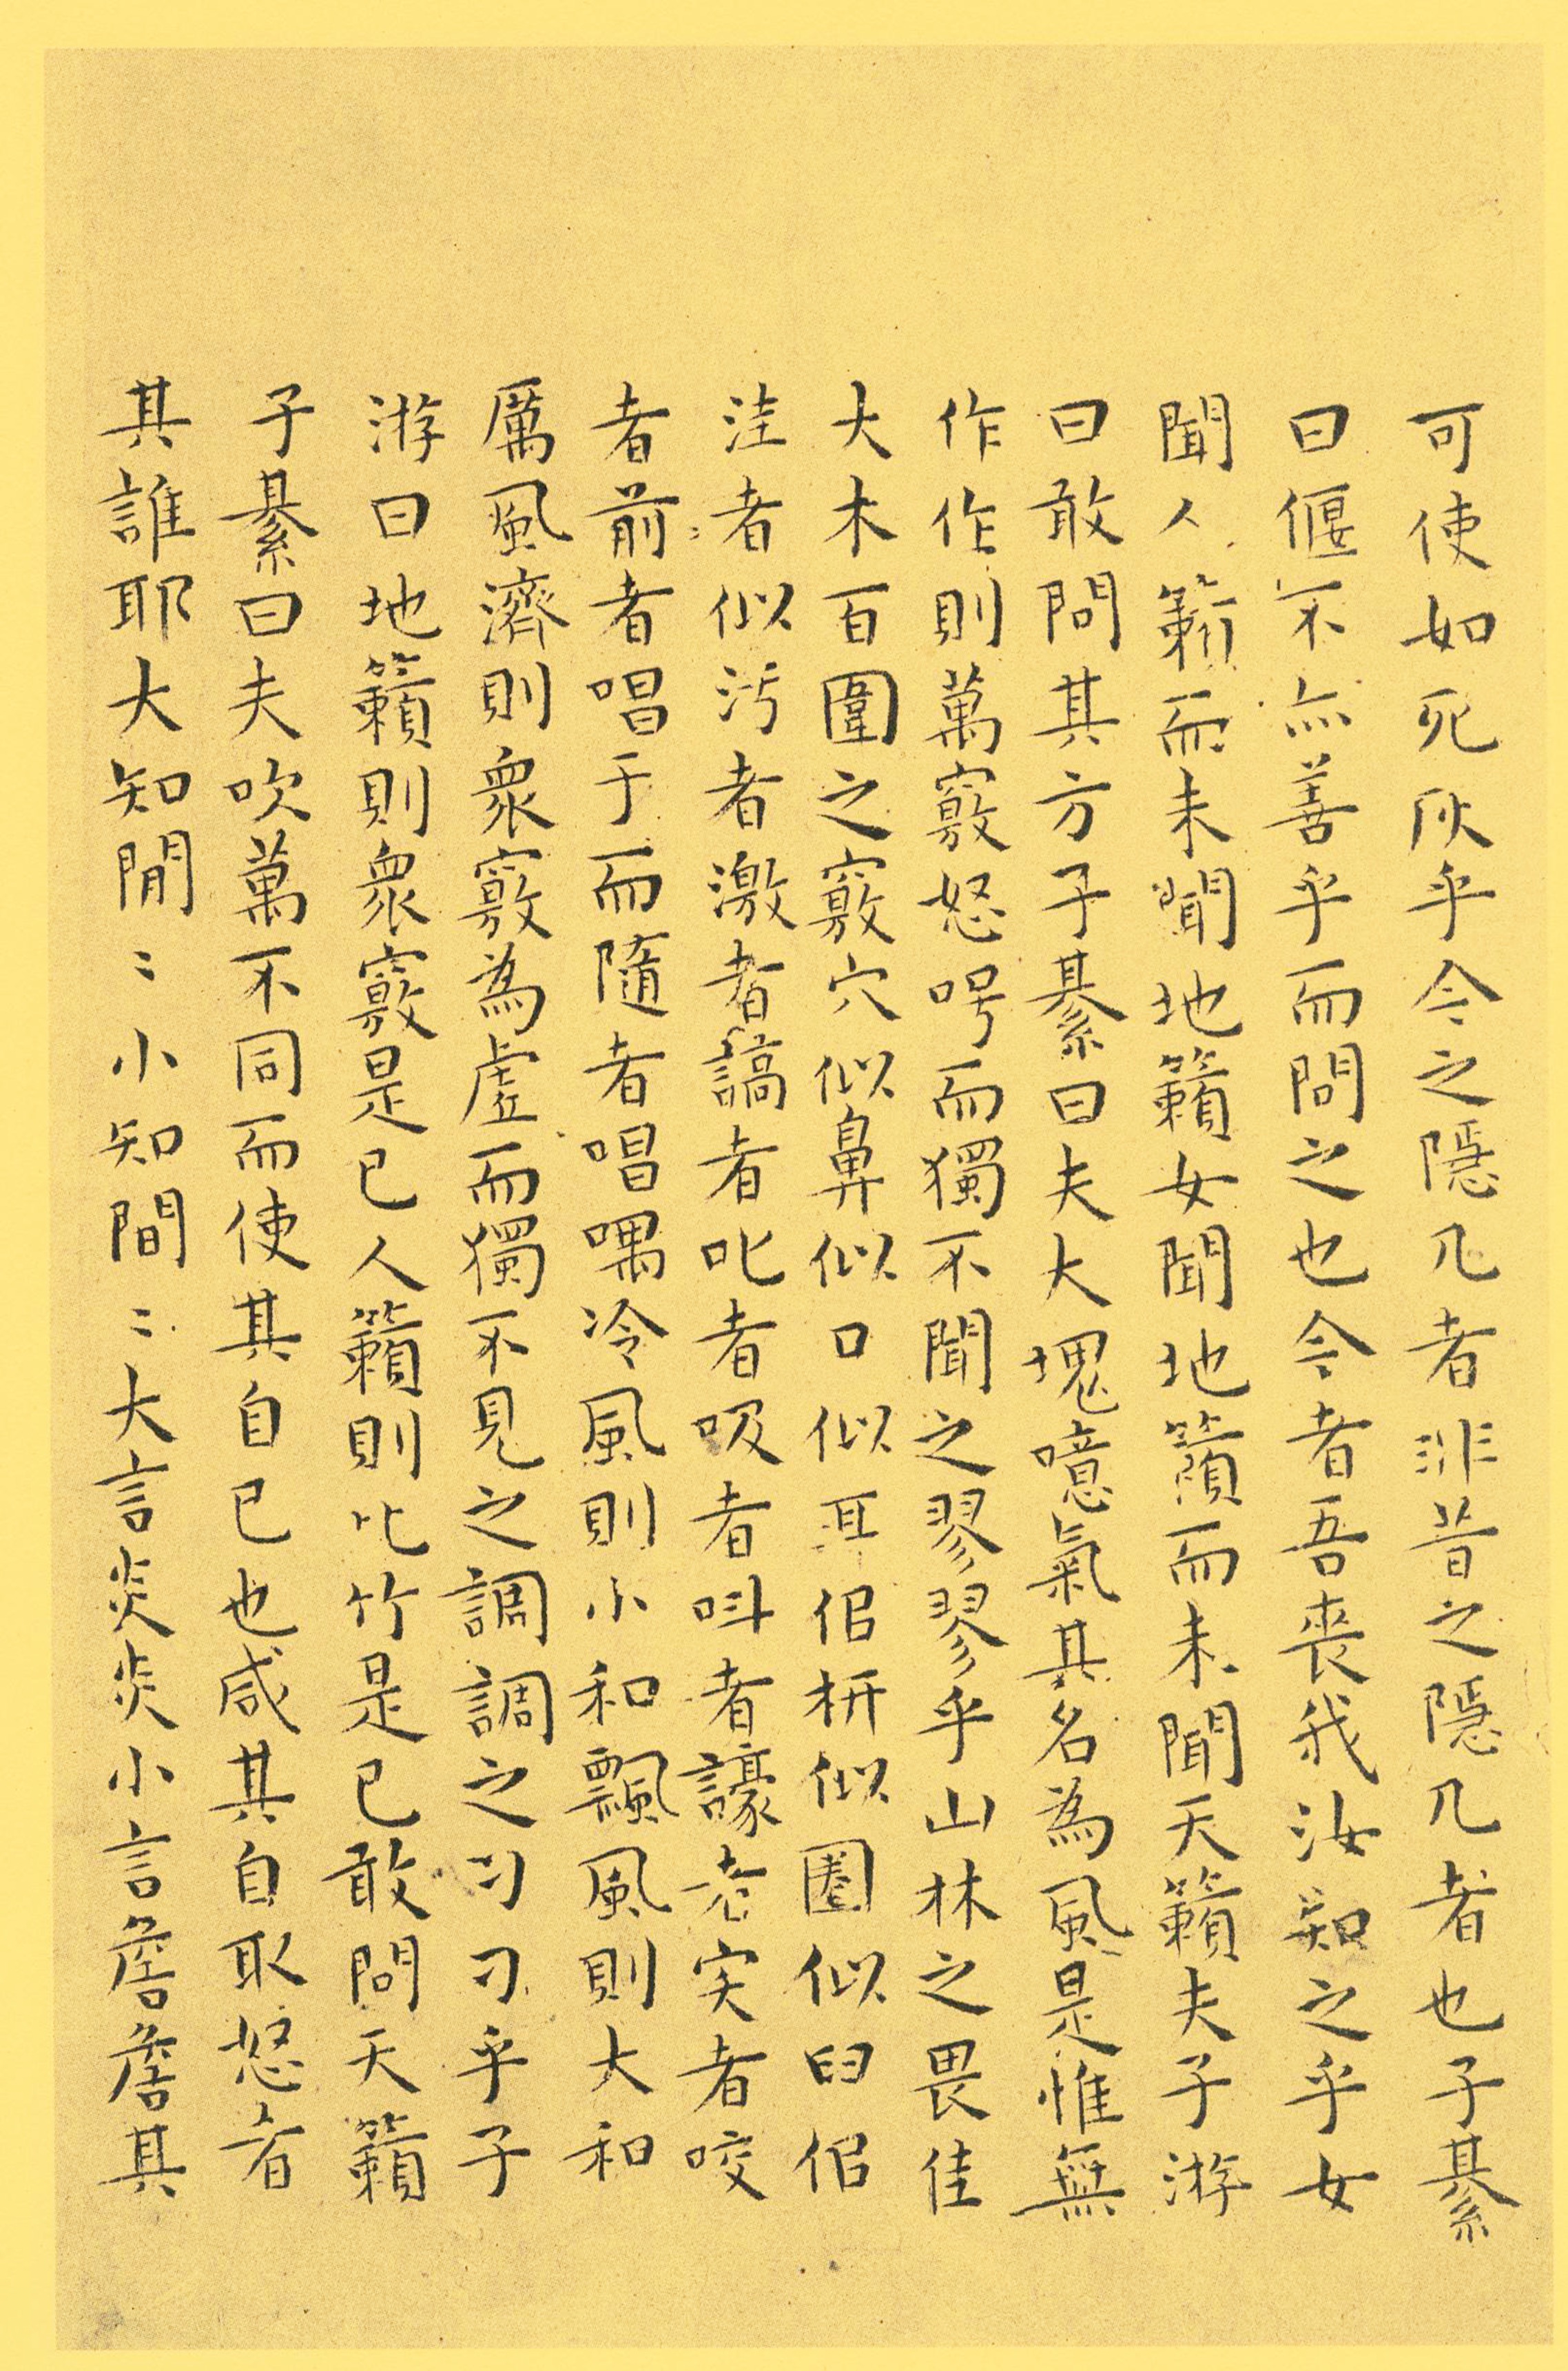 可使如死灰乎今之隱几者非昔之隱几者也子綦
曰偃不亦善乎而問之也今者吾喪我汝知之乎女
聞人籟而未聞地籟女聞地籟而未聞天籟夫子游
曰敢問其方子綦曰夫大塊噫氣其名為風是惟無
作作則萬竅怒呺而獨不聞之翏翏乎山林之畏佳
大木百圍之竅穴似鼻似口似耳佀枅似圈似臼佀
洼者似污者激者謞者叱者吸者叫者譹者宎者咬
者前者唱于而隨者唱喁冷風則小和飄風則大和
厲風濟則眾竅為虛而獨不見之調調之刁刁乎子
游曰地籟則眾竅是已人籟則比竹是已敢問天籟
子綦曰夫吹萬不同而使其自已也咸其自取怒者
其誰耶大知閒〻小知間〻大言炎炎小言詹詹其